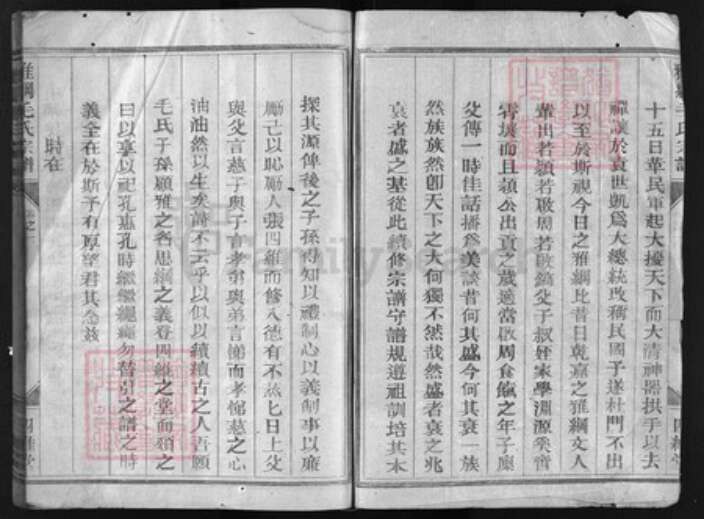 十五日華民軍起大擾天下而大清神器拱手以去
禪讓於袁世凱為大總統改稱民國予遂杜門不出
以至於斯視今日之雅綱比昔日乾嘉之雅綱文人
輩出若穎若敬周若啟鎬父子叔姪家學淵源奚啻
霄壤而且穎公出貢之歲適當啟周食餼之年子廩
父傳一時佳話播為美談昔何其盛今何其衰一族
然族族然卽天下之大何獨不然哉然盛者衰之兆
衰者盛之基從此續修宗譜守譜規遵祖訓培其本
探其源俾後之子孫得知以禮制心以義制事以廉
勵己以恥勵人張四維而修入德有不蒸匕日上父
與父言慈子與子言孝弟與弟言悌而孝悌慈之心
油油然以生矣詩不云乎以似以續續古之人吾願
毛氏子孫顧雅之名思綱之義登四維之堂而頌之
曰以享以祀孔惠孔時繼繼繩繩勿替引之譜之時
義全在於斯予有厚望君其念茲
時在
雅綱毛氏宗譜